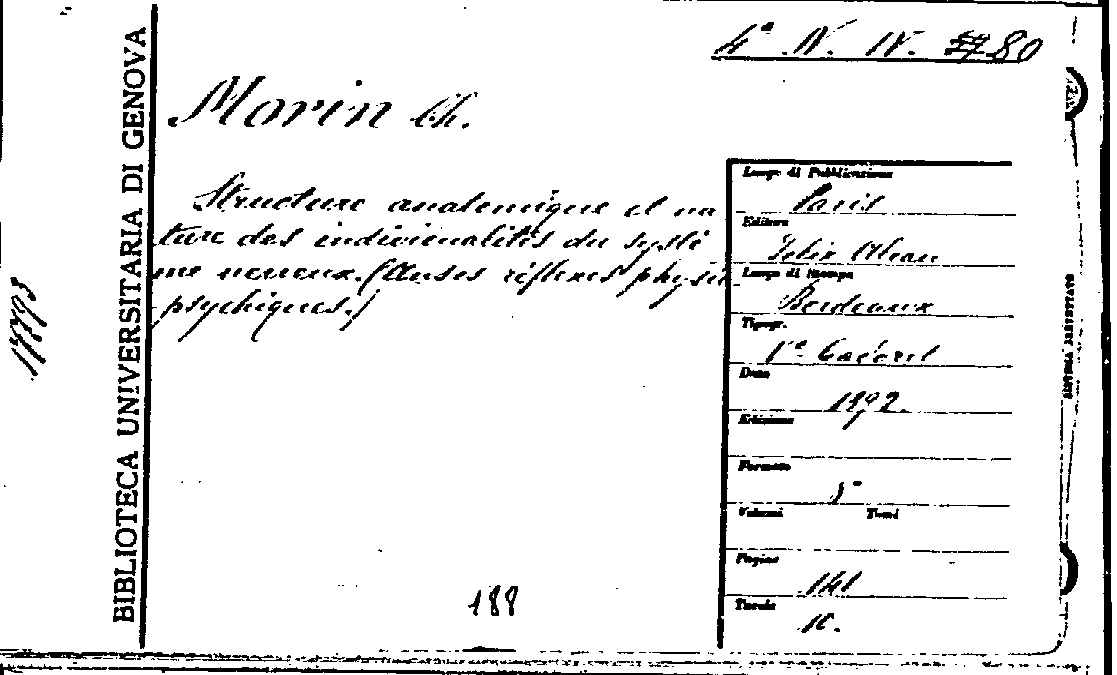 4ª N. IV. 80
Morin Ch.
Structure anatomique et na
ture des individualités du systè
me nerveux. (Causes réflexes physio
psychiques.)
Luogo di Pubblicazione
Paris
Editore
Felix Alcan
Luogo di Stampa
Bordeaux
Tipogr.
Vᵉ Cadoret
Data
1892.
Edizione
Formato
8°
Volumi Tomi
Pagine
141
Tavole
188
BIBLIOTECA UNIVERSITARIA DI GENOVA